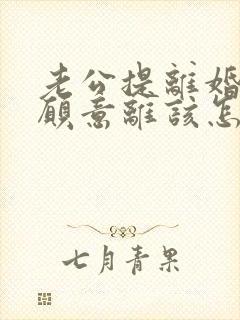 老公提離婚
願意離該怎
七月青果